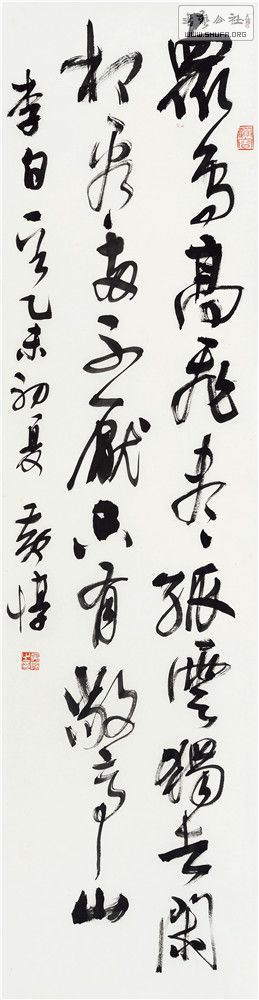 WWW.SHUFA.ORG
眾鳥高飛盡孤雲獨去閑
相看兩不厭只有敬亭山
李白一首乙未初夏黃惇